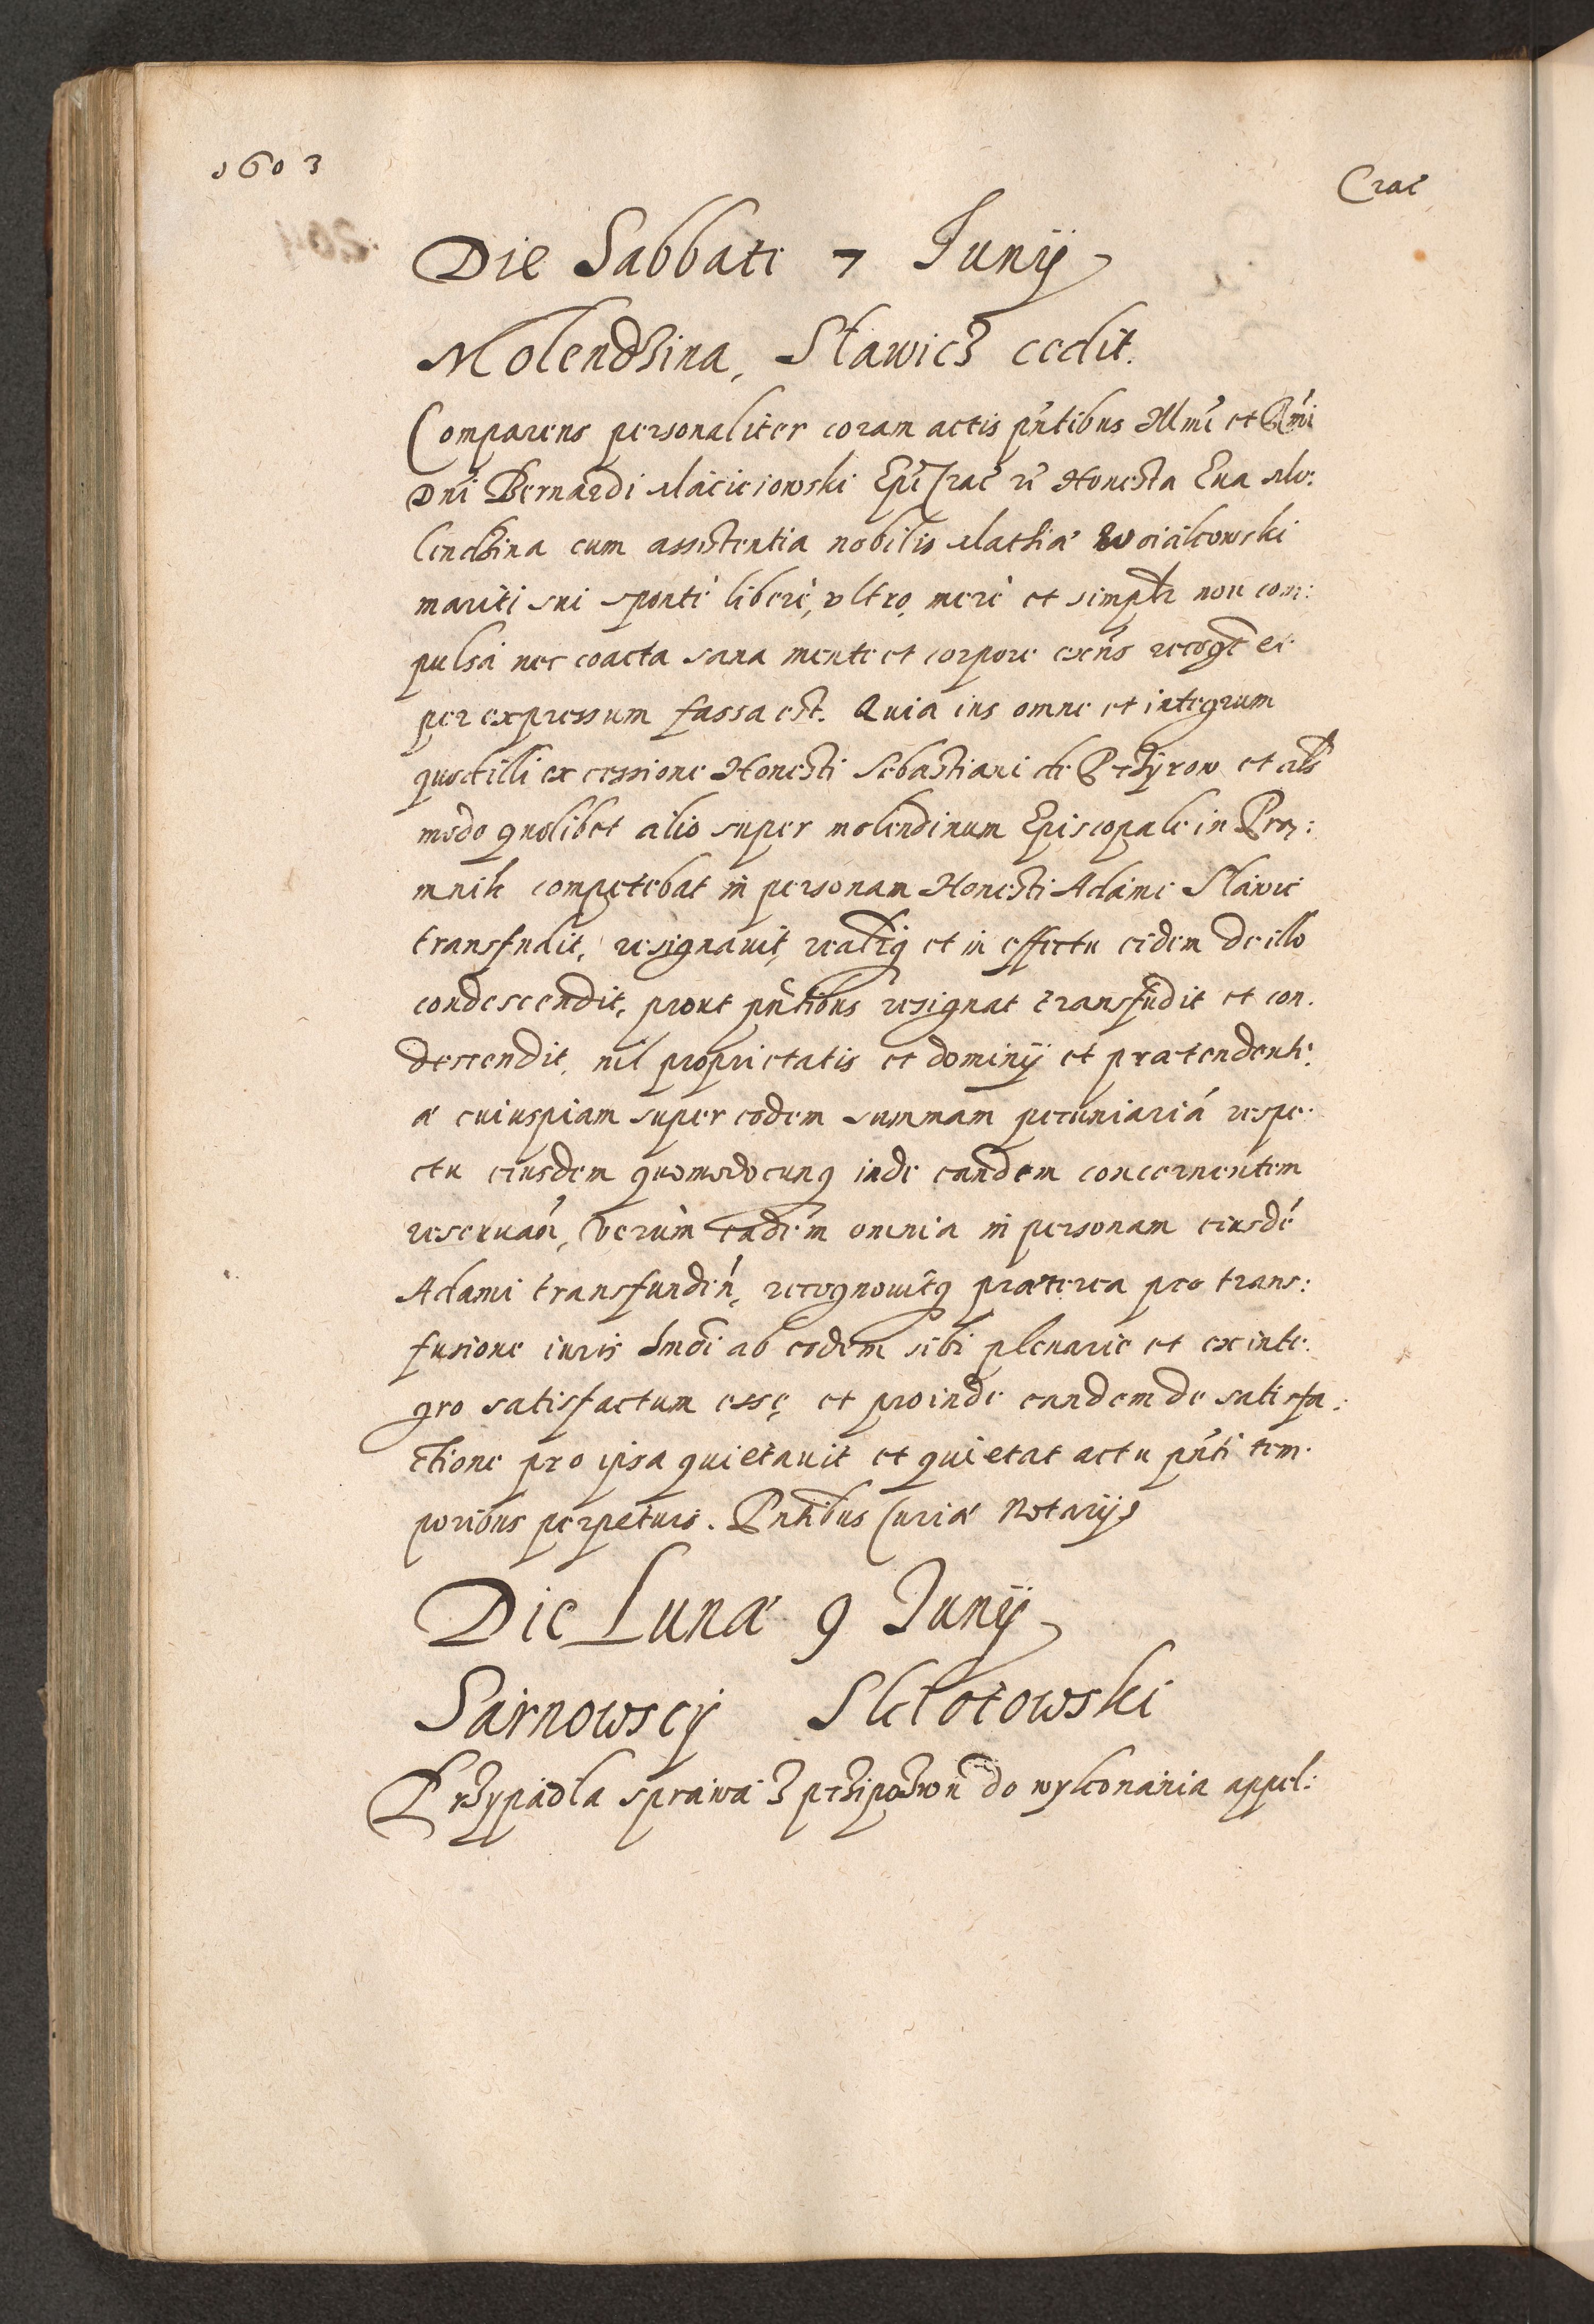 1603
Crac̄
Die Sabbati 7 Junij
Molendzina, Sławicz cedit.
Comparens personaliter coram actis pn̄tibus Illmi et Rm̄i
Dn̄i Bernardi Macieiowski Ep̄i Crac̄ rc̄ Honesta Eua Mo:
lendzina cum assistentia nobilis Mathiæ Woiałkowski
mariti sui spontè liberè, vltro, merè et simplr non com:
pulsa nec coacta sana mente et corpore exēns recogt et
per expressum fassa est. Quia ius omne et integrum
quod illi ex cessione Honesti Sebastiani de Przyrow et als
modo quolibet alio super molendinum Episcopale in Prą:
mnik competebat in personam Honesti Adami Sławic
transfudit, resignauit, realrq et in effectu eidem de illo
condescendit, prout pn̄tibus resignat transfudit et con.
descendit, nil proprietatis et dominij et prætendenti:
æ cuiuspiam super eodem summam pecuniariā respe.
ctu eiusdem quomodocunq inde eandem concernentem
reseruan̄, verùm eadem omnia in personam eiusdē
Adami transfunden̄, recognouitq præterea pro trans:
fusione iuris hm̄di ab eodem sibi plenarie et ex inte.
gro satisfactum esse, et proinde eundem de satisfa:
ctione pro ipsa quietauit et quietat actu pn̄ti tem.
poribus perpetuis. Pn̄tibus Curiæ Notarijs
Die Lunæ 9 Junij
Sarnowscy Skotowski
Przypadła sprawa z przipozwu do wykonania appel: